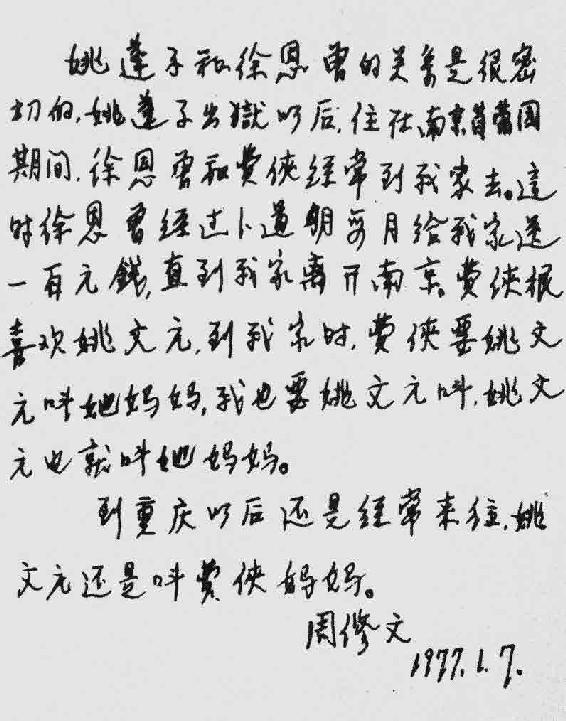 姚蓬子和徐恩曾的关系是很密
切的,姚蓬子出獄以后,住在南京首蓿园
期间,徐恩曾和費俠經常到我家去。這
时徐恩曾經过卜道明每月给我家送
一百元錢,直到我家离开南京。費俠很
喜欢姚文元,到我家时,費俠要姚文
元叫她妈妈,我也要姚文元叫,姚文
元也就叫她妈妈。
到重庆以后还是經常来往,姚
文元还是叫費俠妈妈。
周修文
1977.1.7.